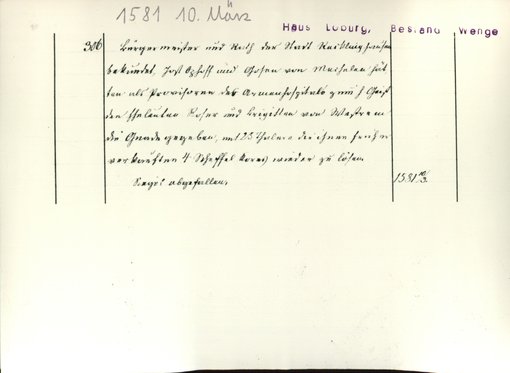 1581 10. März
Haus Loburg, Bestand Wenge
306 Bürgermeister und Rath der Stadt Recklinghausen
bekundet, Jost und von Mechelen hät
ten als Provisoren des Armenhospitals zum h Geist
den Eheleuten und Brigitten von Westrem
die Gnade gegeben, mit 25 Thalern die ihnen früher
verkauften 4 Scheffel Korns wieder zu lösen.
Siegel abgefallen.
1581 10/3.